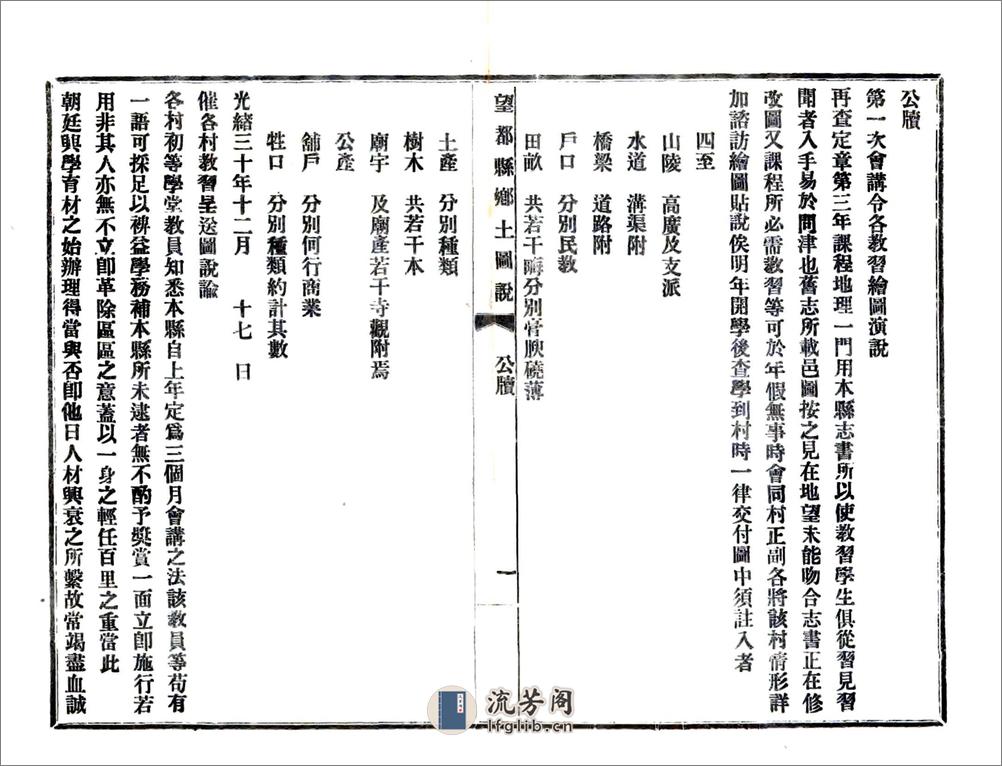 公牘
第一次會講令各教習繪圖演說
再查定章第三年課程地理一門用本縣志書所以使教習學生俱從習見習
聞者入手易於問津也舊志所載邑圖按之見在地望未能吻合志書正在修
改圖又課程所必需教習等可於年假無事時會同村正副各將該村情形詳
加諮訪繪圖貼說俟明年開學後查學到村時一律交付圖中須註入者
四至
山陵 高廣及支派
水道 溝渠附
橋梁 道路附
戶口 分別民教
田畝 共若干畮分別膏腴磽薄
望都縣鄉土圖說 公牘 一
土產 分別種類
樹木 共若干本
廟宇 及廟產若干寺觀附焉
公產
舖戶 分別何行商業
牲口 分別種類約計其數
光緒三十年十二月 十七 日
催各村教習呈送圖說諭
各村初等學堂教員知悉本縣自上年定爲三個月會講之法該教員等苟有
一語可採足以裨益學務補本縣所未逮者無不酌予獎賞一面立卽施行若
用非其人亦無不立卽革除區區之意蓋以一身之輕任百里之重當此
朝廷興學育材之始辦理得當與否卽他日人材興衰之所繫故常竭盡血誠
流芳阁
lfglib.com